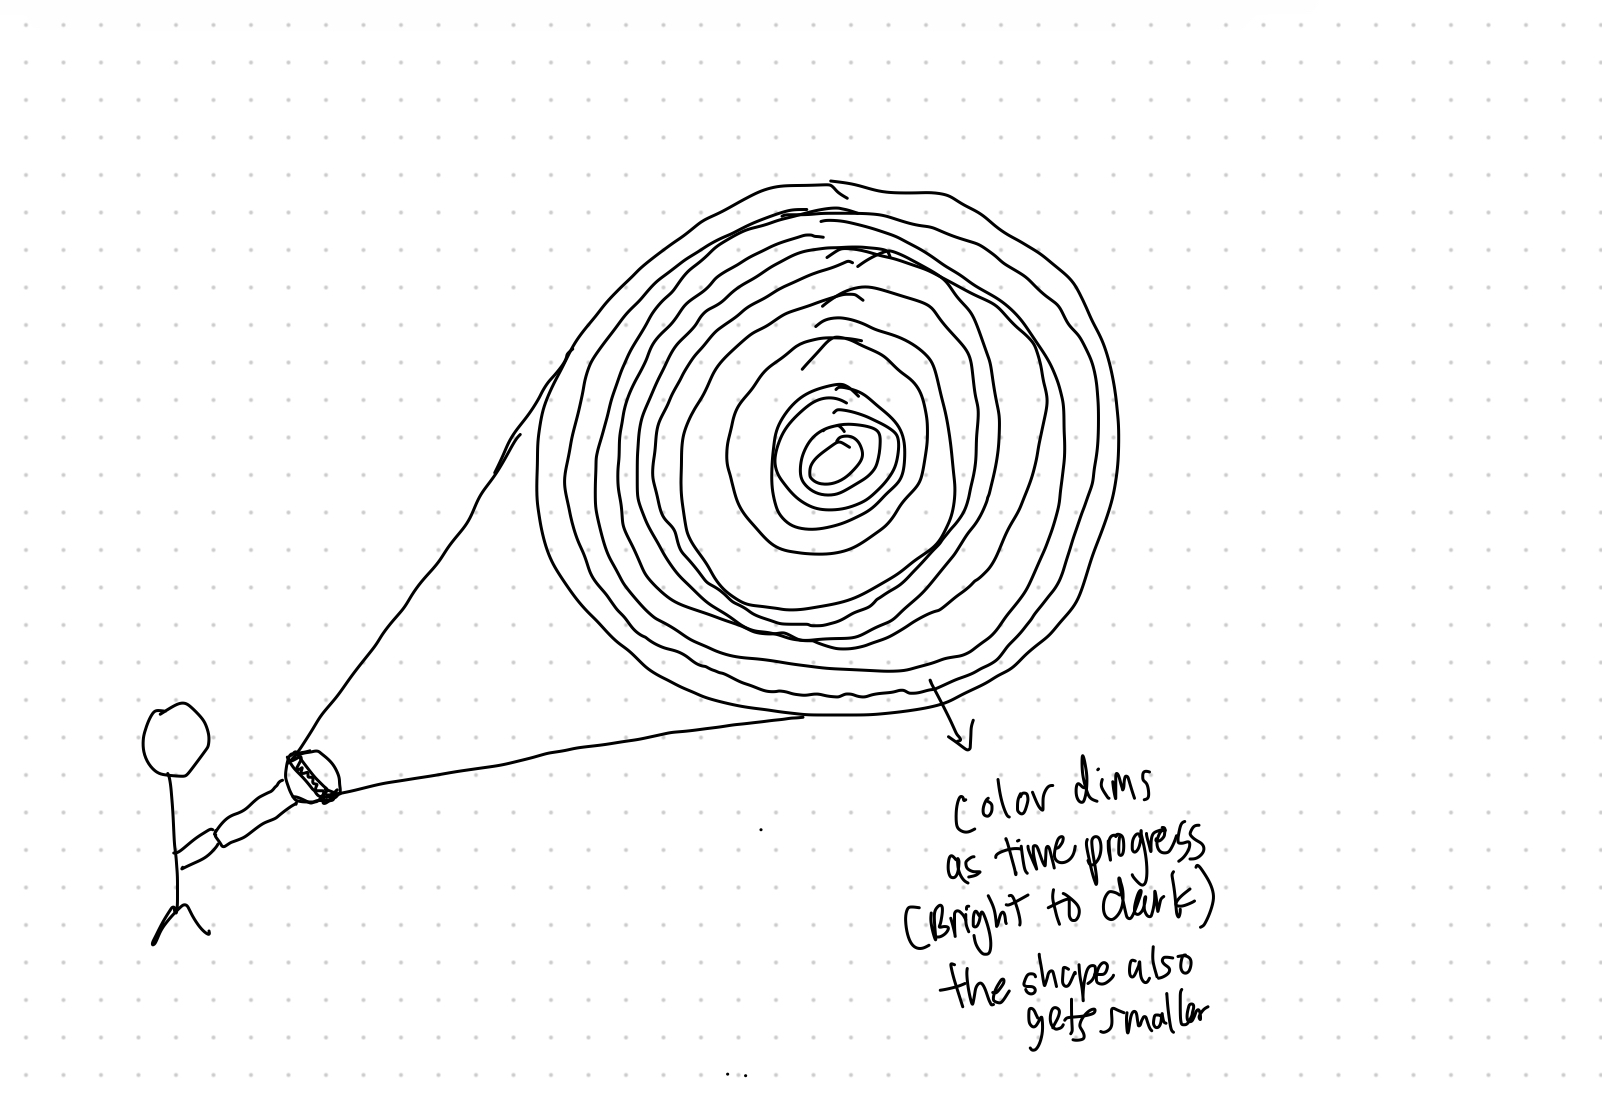 color dims
as time progress
(Bright to dark)
the shape also
gets smaller